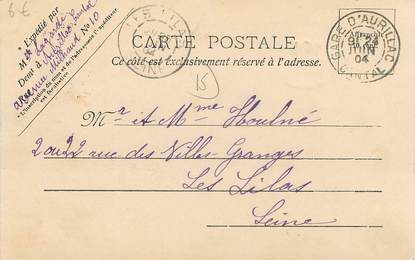 6-€
* Expédié par
Mr Lagarde
Demt à Aurillac Cantal
avenue Milhaud No 10
* L'inscription du nom et de l'adresse de l'expéditeur
est facultative.
LILAS
SEINE
CARTE POSTALE
Ce côté est exclusivement réservé à l'adresse.
GARE D'AURILLAC
24
04
CANTAL
15
Mr et Mme Houlné
2 ou 22 rue des Villes-Granges
Les Lilas
Seine